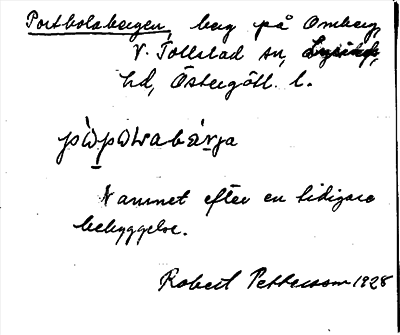 Portbolabergen, berg på Omberg,
V. Tollstad sn, Lysings
hd, Östergötl. l.
Namnet efter en tidigare
bebyggelse.
Robert Pettersson 1928